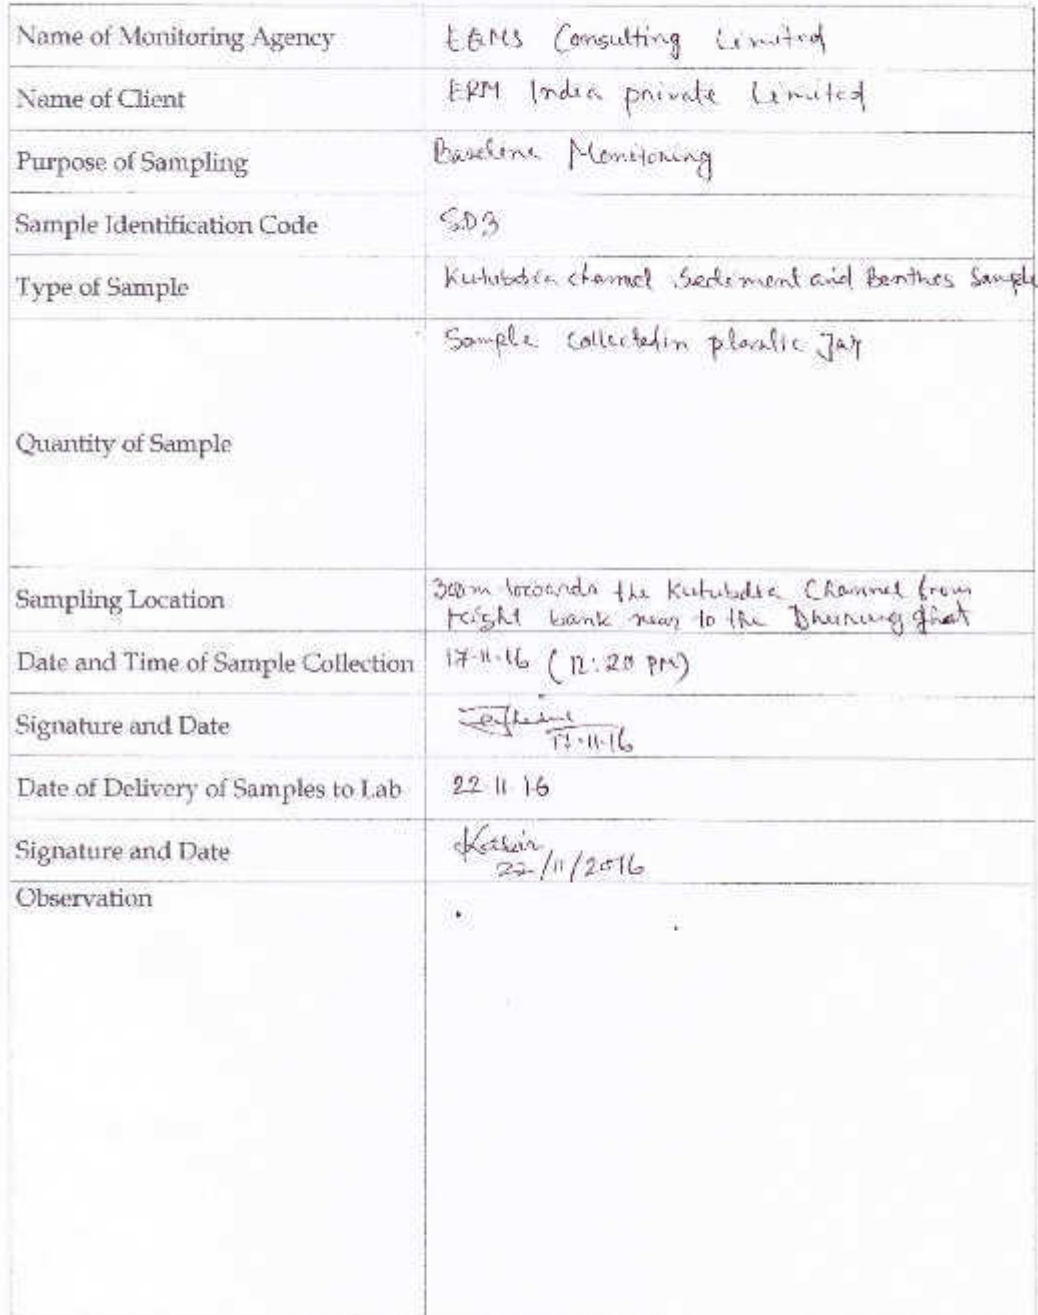 Name of Monitoring Agency EQMS Consulting Limited
Name of Client ERM India private Limited
Purpose of Sampling Baseline Monitoring
Sample Identification Code SD3
Type of Sample Kutubdia channel Sediment and Benthos Sample
Sample Collected in plastic Jar
Quantity of Sample
Sampling Location 300m towards the Kutubdia Channel from
right bank near to the Dhurung ghat
Date and Time of Sample Collection 17.11.16 (12:20 PM)
Signature and Date
17.11.16
Date of Delivery of Samples to Lab 22.11.16
Signature and Date
22/11/2016
Observation